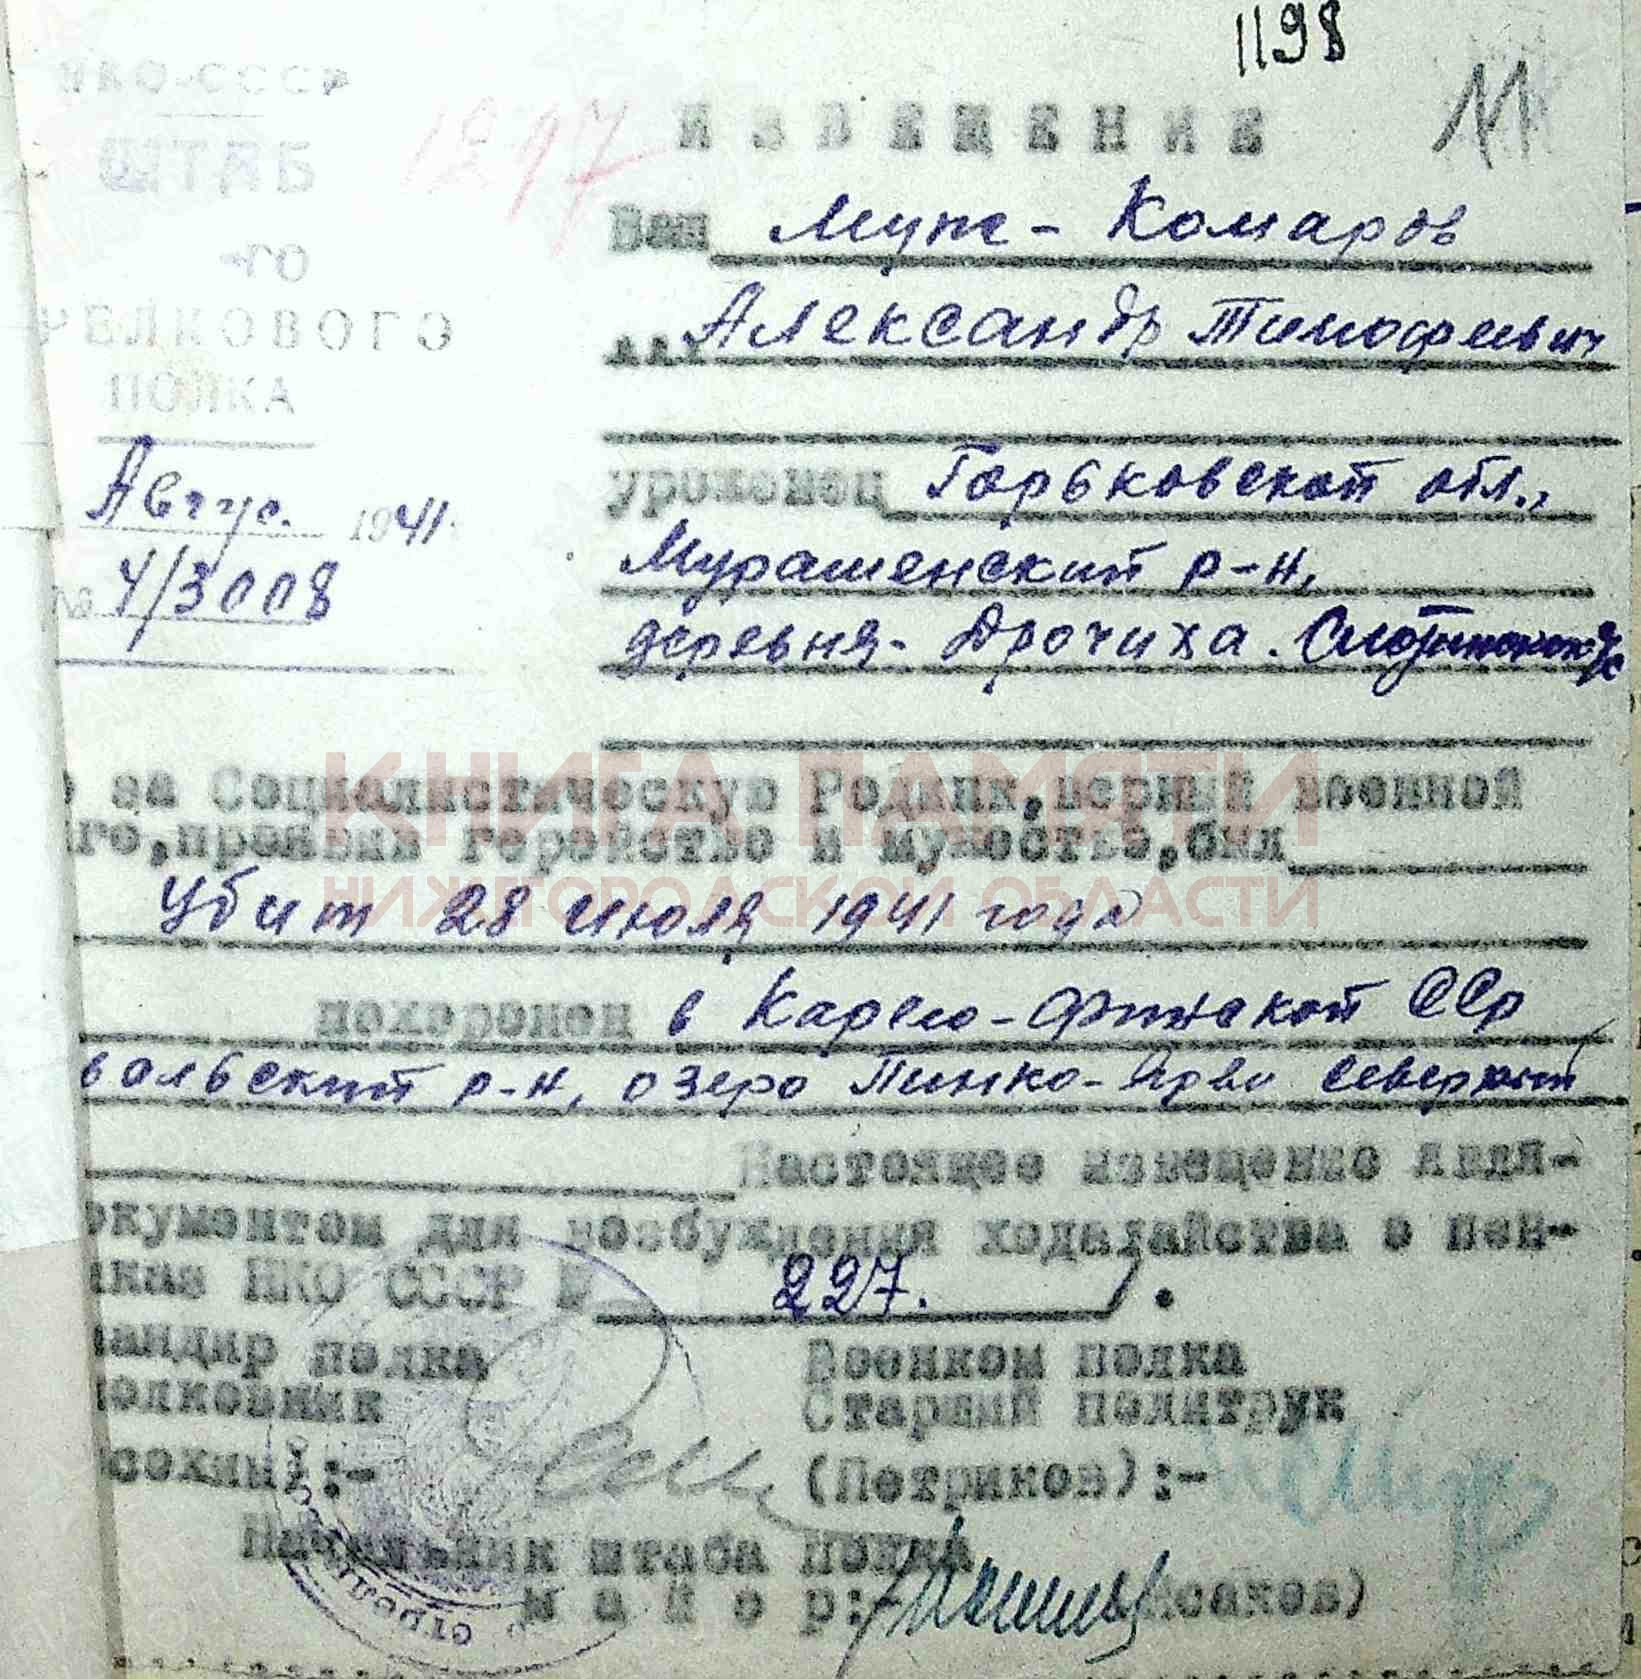 1198
11
1297
НКО-СССР
ШТАБ
-го
РЕЛКОВОГО
ПОЛКА
Авгус. 1941
№ 4/3008
ИЗВЕЩЕНИЕ
Ваш муж - Комаров
Александр Тимофеевич
уроженец Горьковской обл.,
Мурашенский р-н,
деревня - Дрочиха.
за Социалистическую Родину, верный военной
яге, проявив геройство и мужество, был
Убит 28 июля 1941 года
похоронен в Карело-Финской ССР
вальский р-н, озеро Пинко-Ярви северный
Настоящее извещение явля-
окументом для возбуждения ходатайства о пен-
иказ НКО СССР № 227.).
мандир полка Военком полка
полковник Старший политрук
сохин):- (Петриков):-
Начальник штаба полка
майор:- (Исаков)
КНИГА ПАМЯТИ
НИЖЕГОРОДСКОЙ ОБЛАСТИ